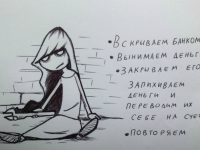 • Вскрываем банком
• Вынимаем деньг
• Закрываем его
Запихиваем
деньги и
переводим их
себе на счё
• Повторяем